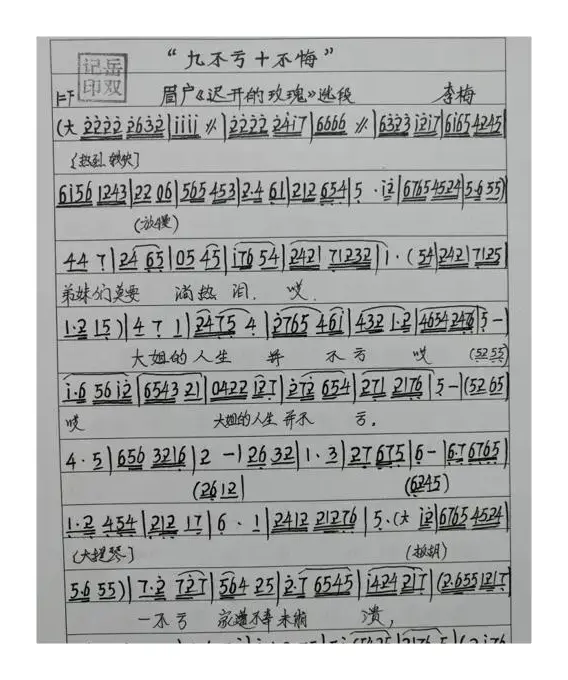 “九不亏十不悔”
岳双记印
1=F 眉户《迟开的玫瑰》选段 李梅
(大 2222 2632|1111 〃|2222 2417|6666 〃|6323 1217|6165 4245|
6156 1243|22 06|565 453|2·4 61|212 654|5 · 12|6765 4524|5·6 55)
(放慢)
44 7|24 65|05 45|176 54|2421 71232|1·(54|242|7125|
弟妹们莫要 淌热泪. 哎.
1·2 15)|4 7 1|2475 4|2765 461|432 1·2|4654 246|5 -|
大姐的人生 并 不亏 哎 (52 55)
1·6 56 12|6543 21|0422 127|272 654|271 2176|5 -|(52 65
哎 大姐的人生并不 亏.
4·5|656 3216|2 -|26 32|1·3|27 675|6 -|6·7 6765|
(26 12| (6245)
1·2 454|212 17|6 · 1|2412 21276|5·(大 12|6765 4524|
(大提琴) (板胡)
5·6 55)|7·2 727|564 25|2·7 6545|1424 217|(2·655 1217|
一不亏 家遭不幸未崩 溃,